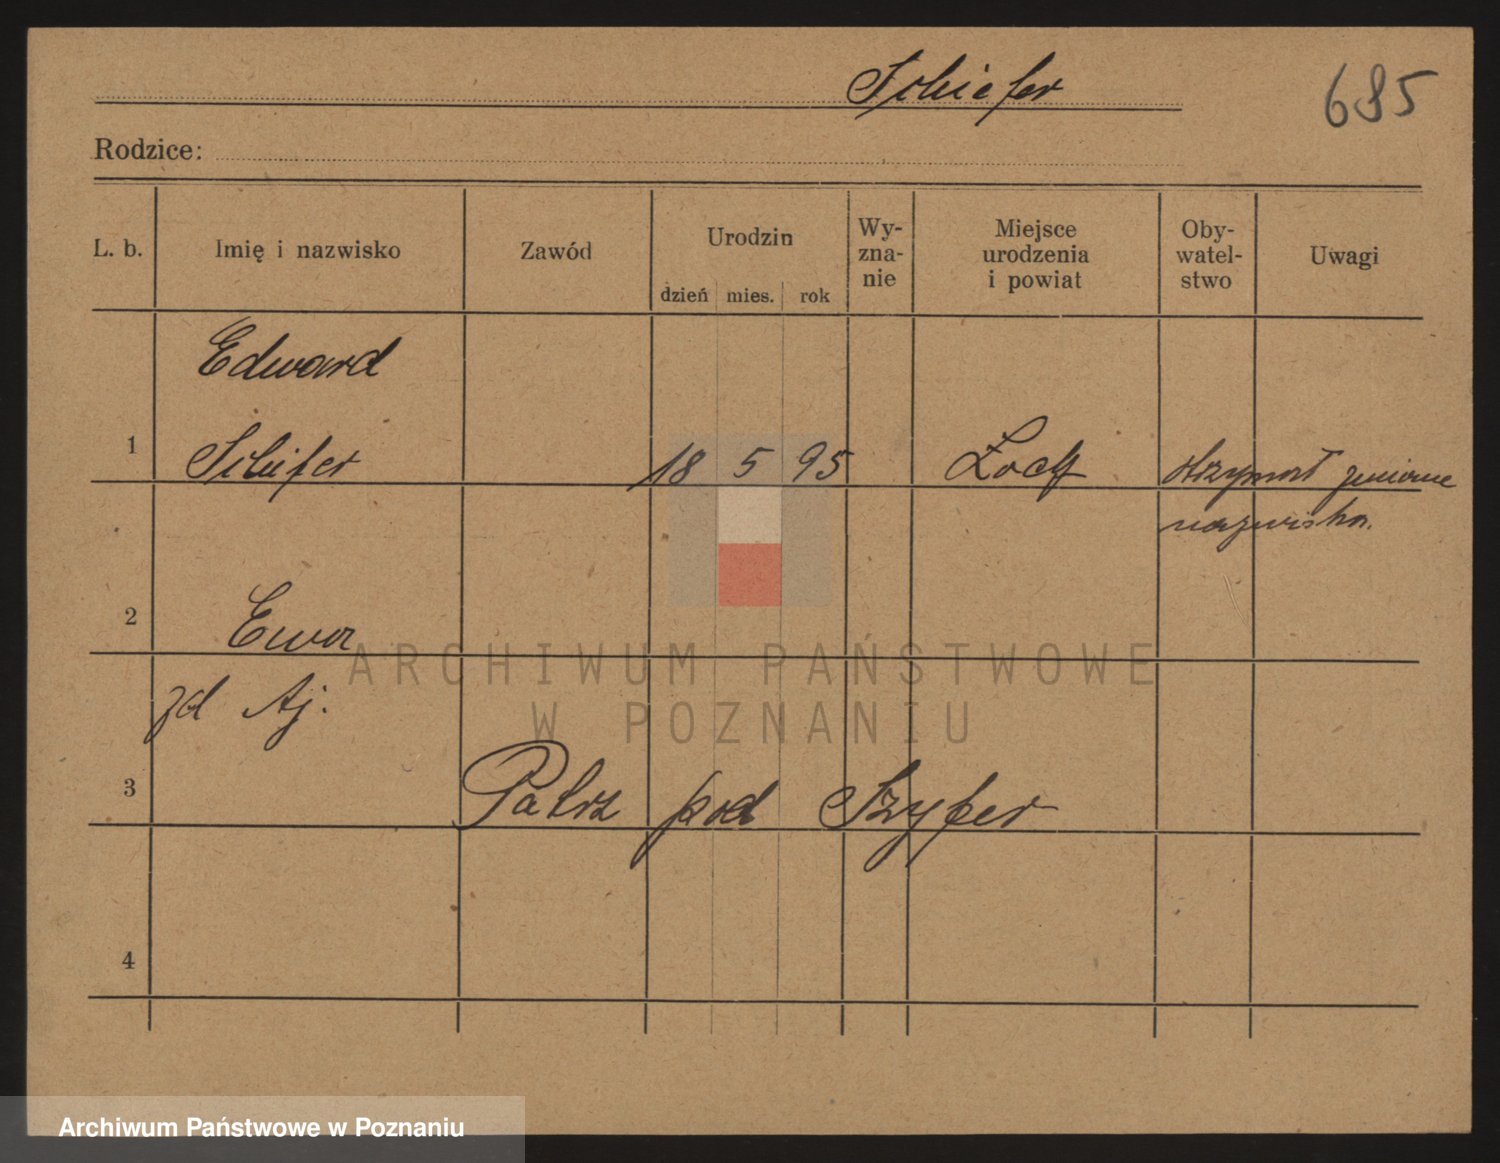 Schiefer
685
Rodzice:
L. b.
Imię i nazwisko
Zawód
Urodzin
dzień mies. rok
Wy-
zna-
nie
Miejsce
urodzenia
i powiat
Oby-
watel-
stwo
Uwagi
Edward
1 Schifer 18 5 95 otrzymał zmianę
nazwiska.
2 Ewa
zd Aj.
3 Patrz pod Szyfer
4
ARCHIWUM PAŃSTWOWE
W POZNANIU
Archiwum Państwowe w Poznaniu